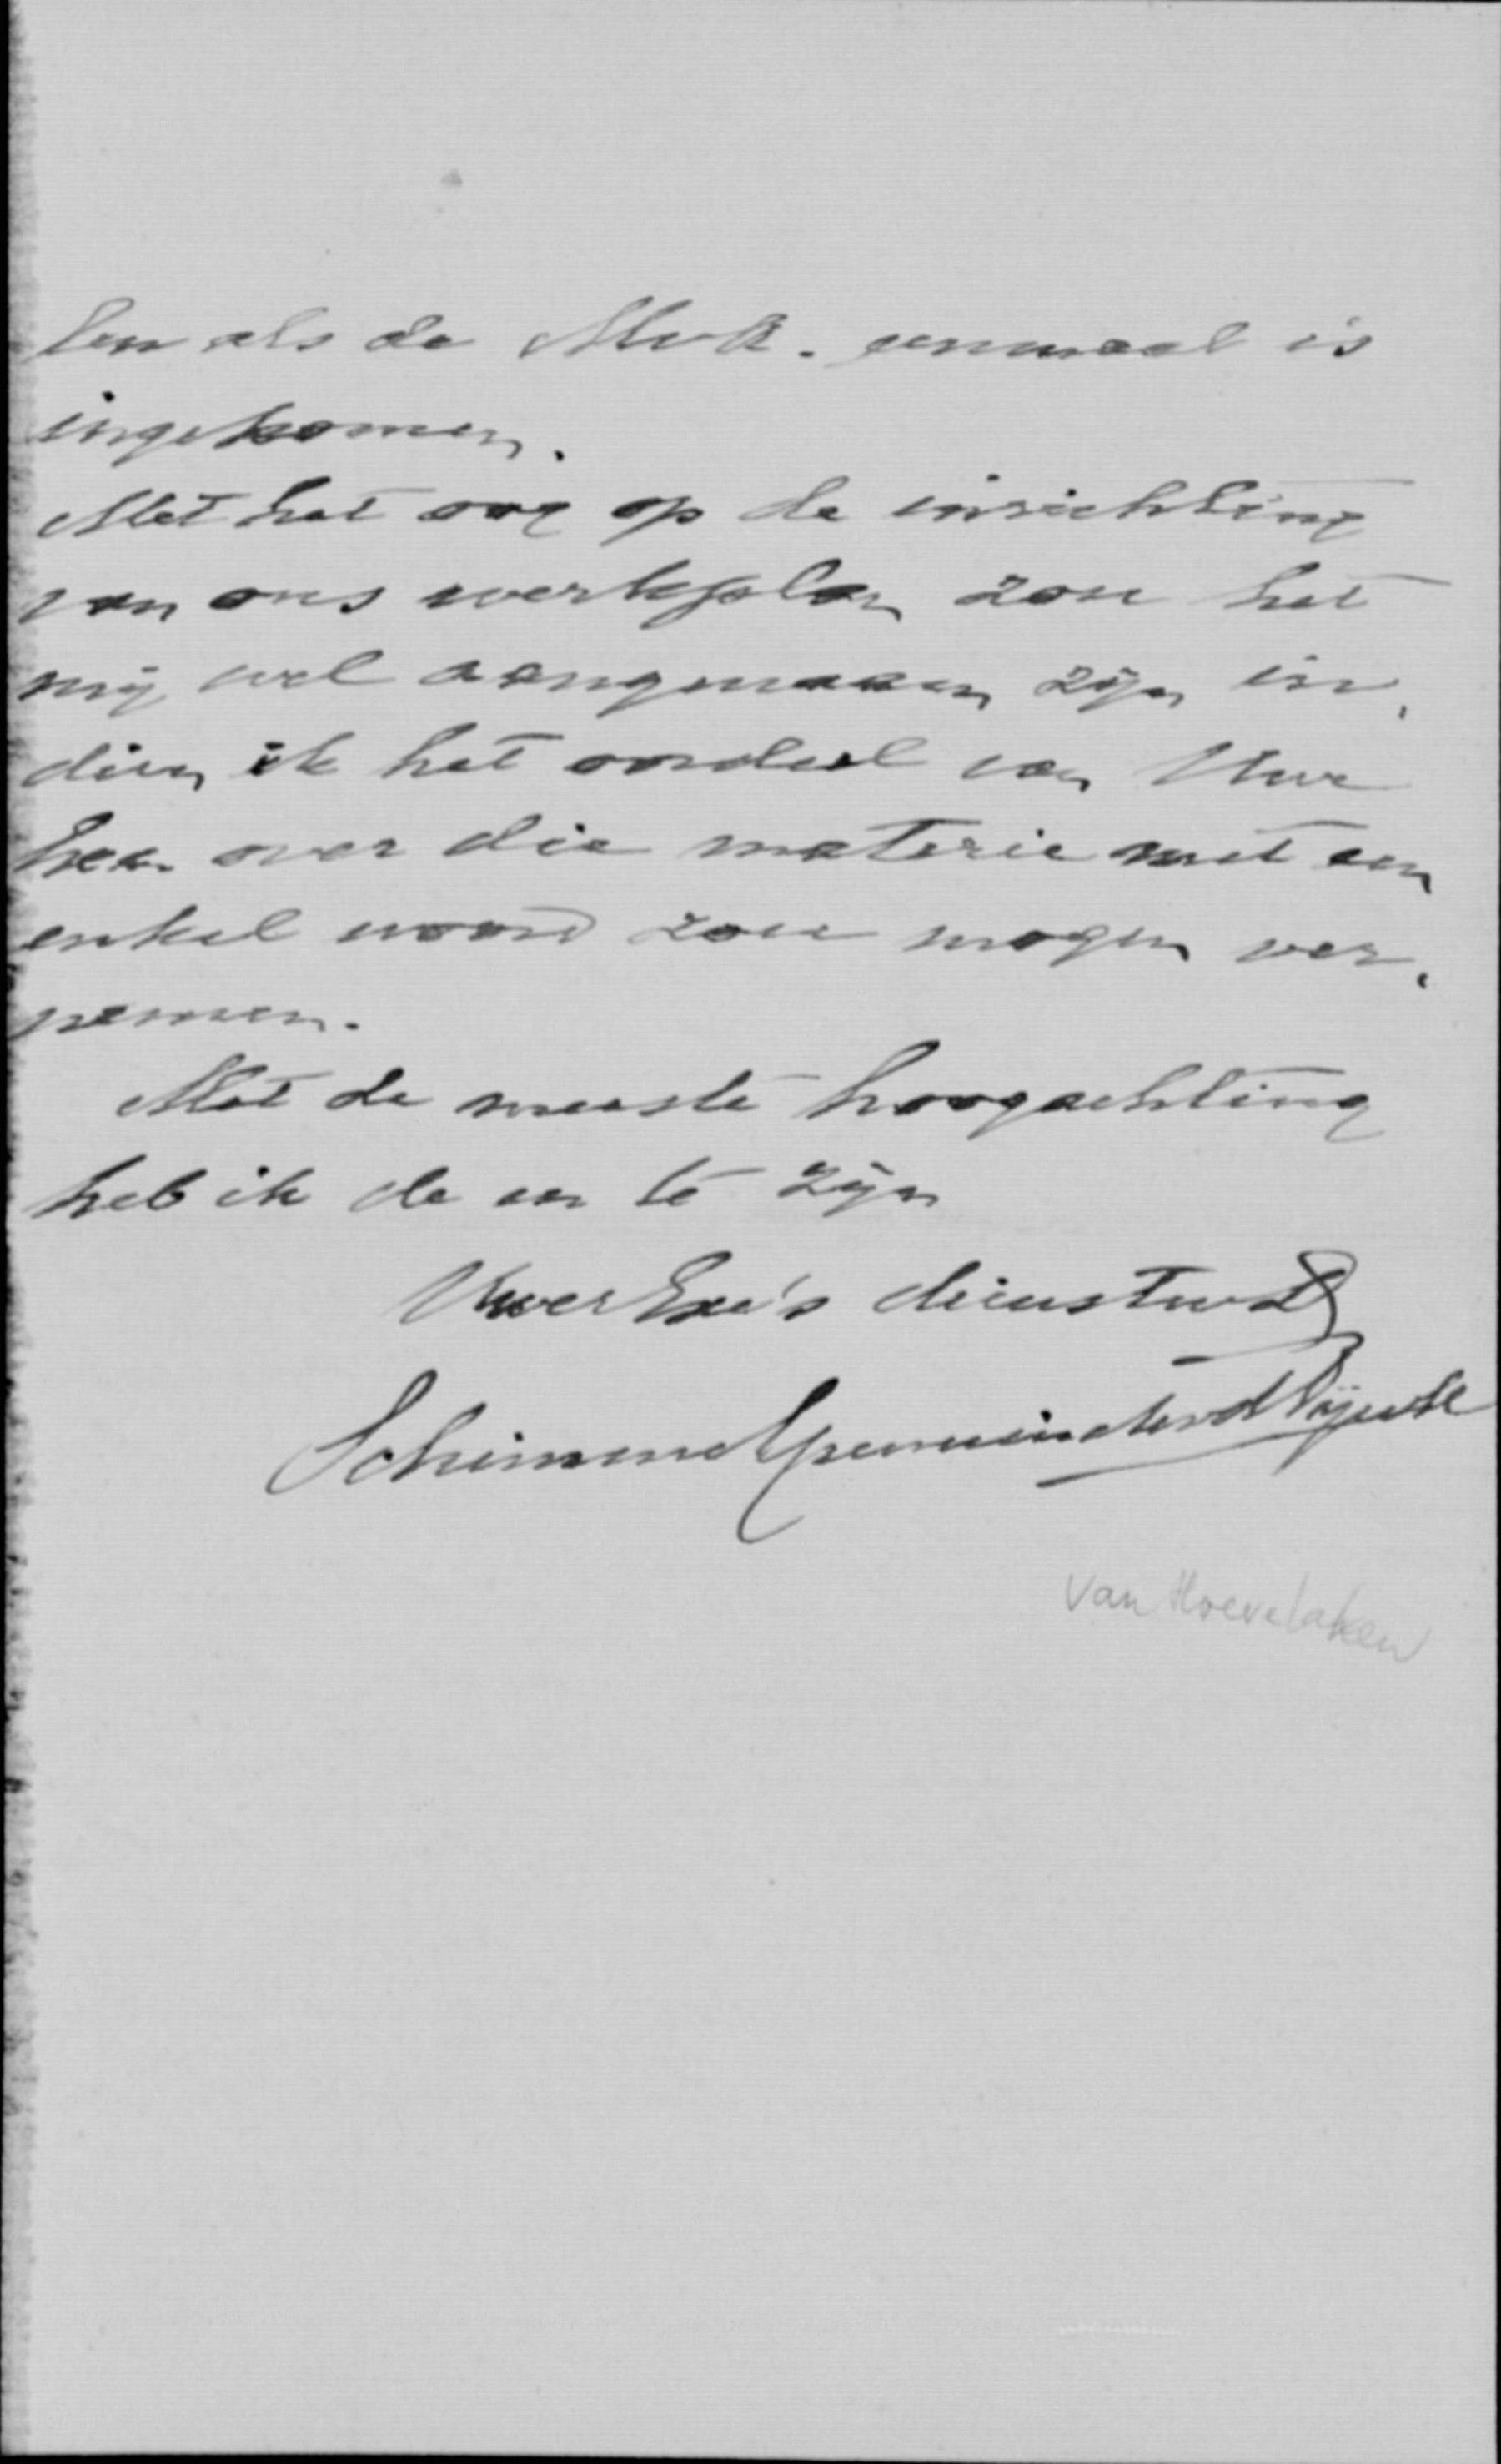 len als de MvA. eenmaal is
ingekomen.
Met het oog op de inrichting
van ons werkplan zou het
mij wel aangenaam zijn in,
dien ik het oordeel van Uwe
over die materie met een
enkel woord zou mogen ver,
nemen.
Met de meeste hoogachting
heb ik de eer te zijn
Uwer Exc's dienstw
Schimmelpenninck vd Oije
van Hoevelaken